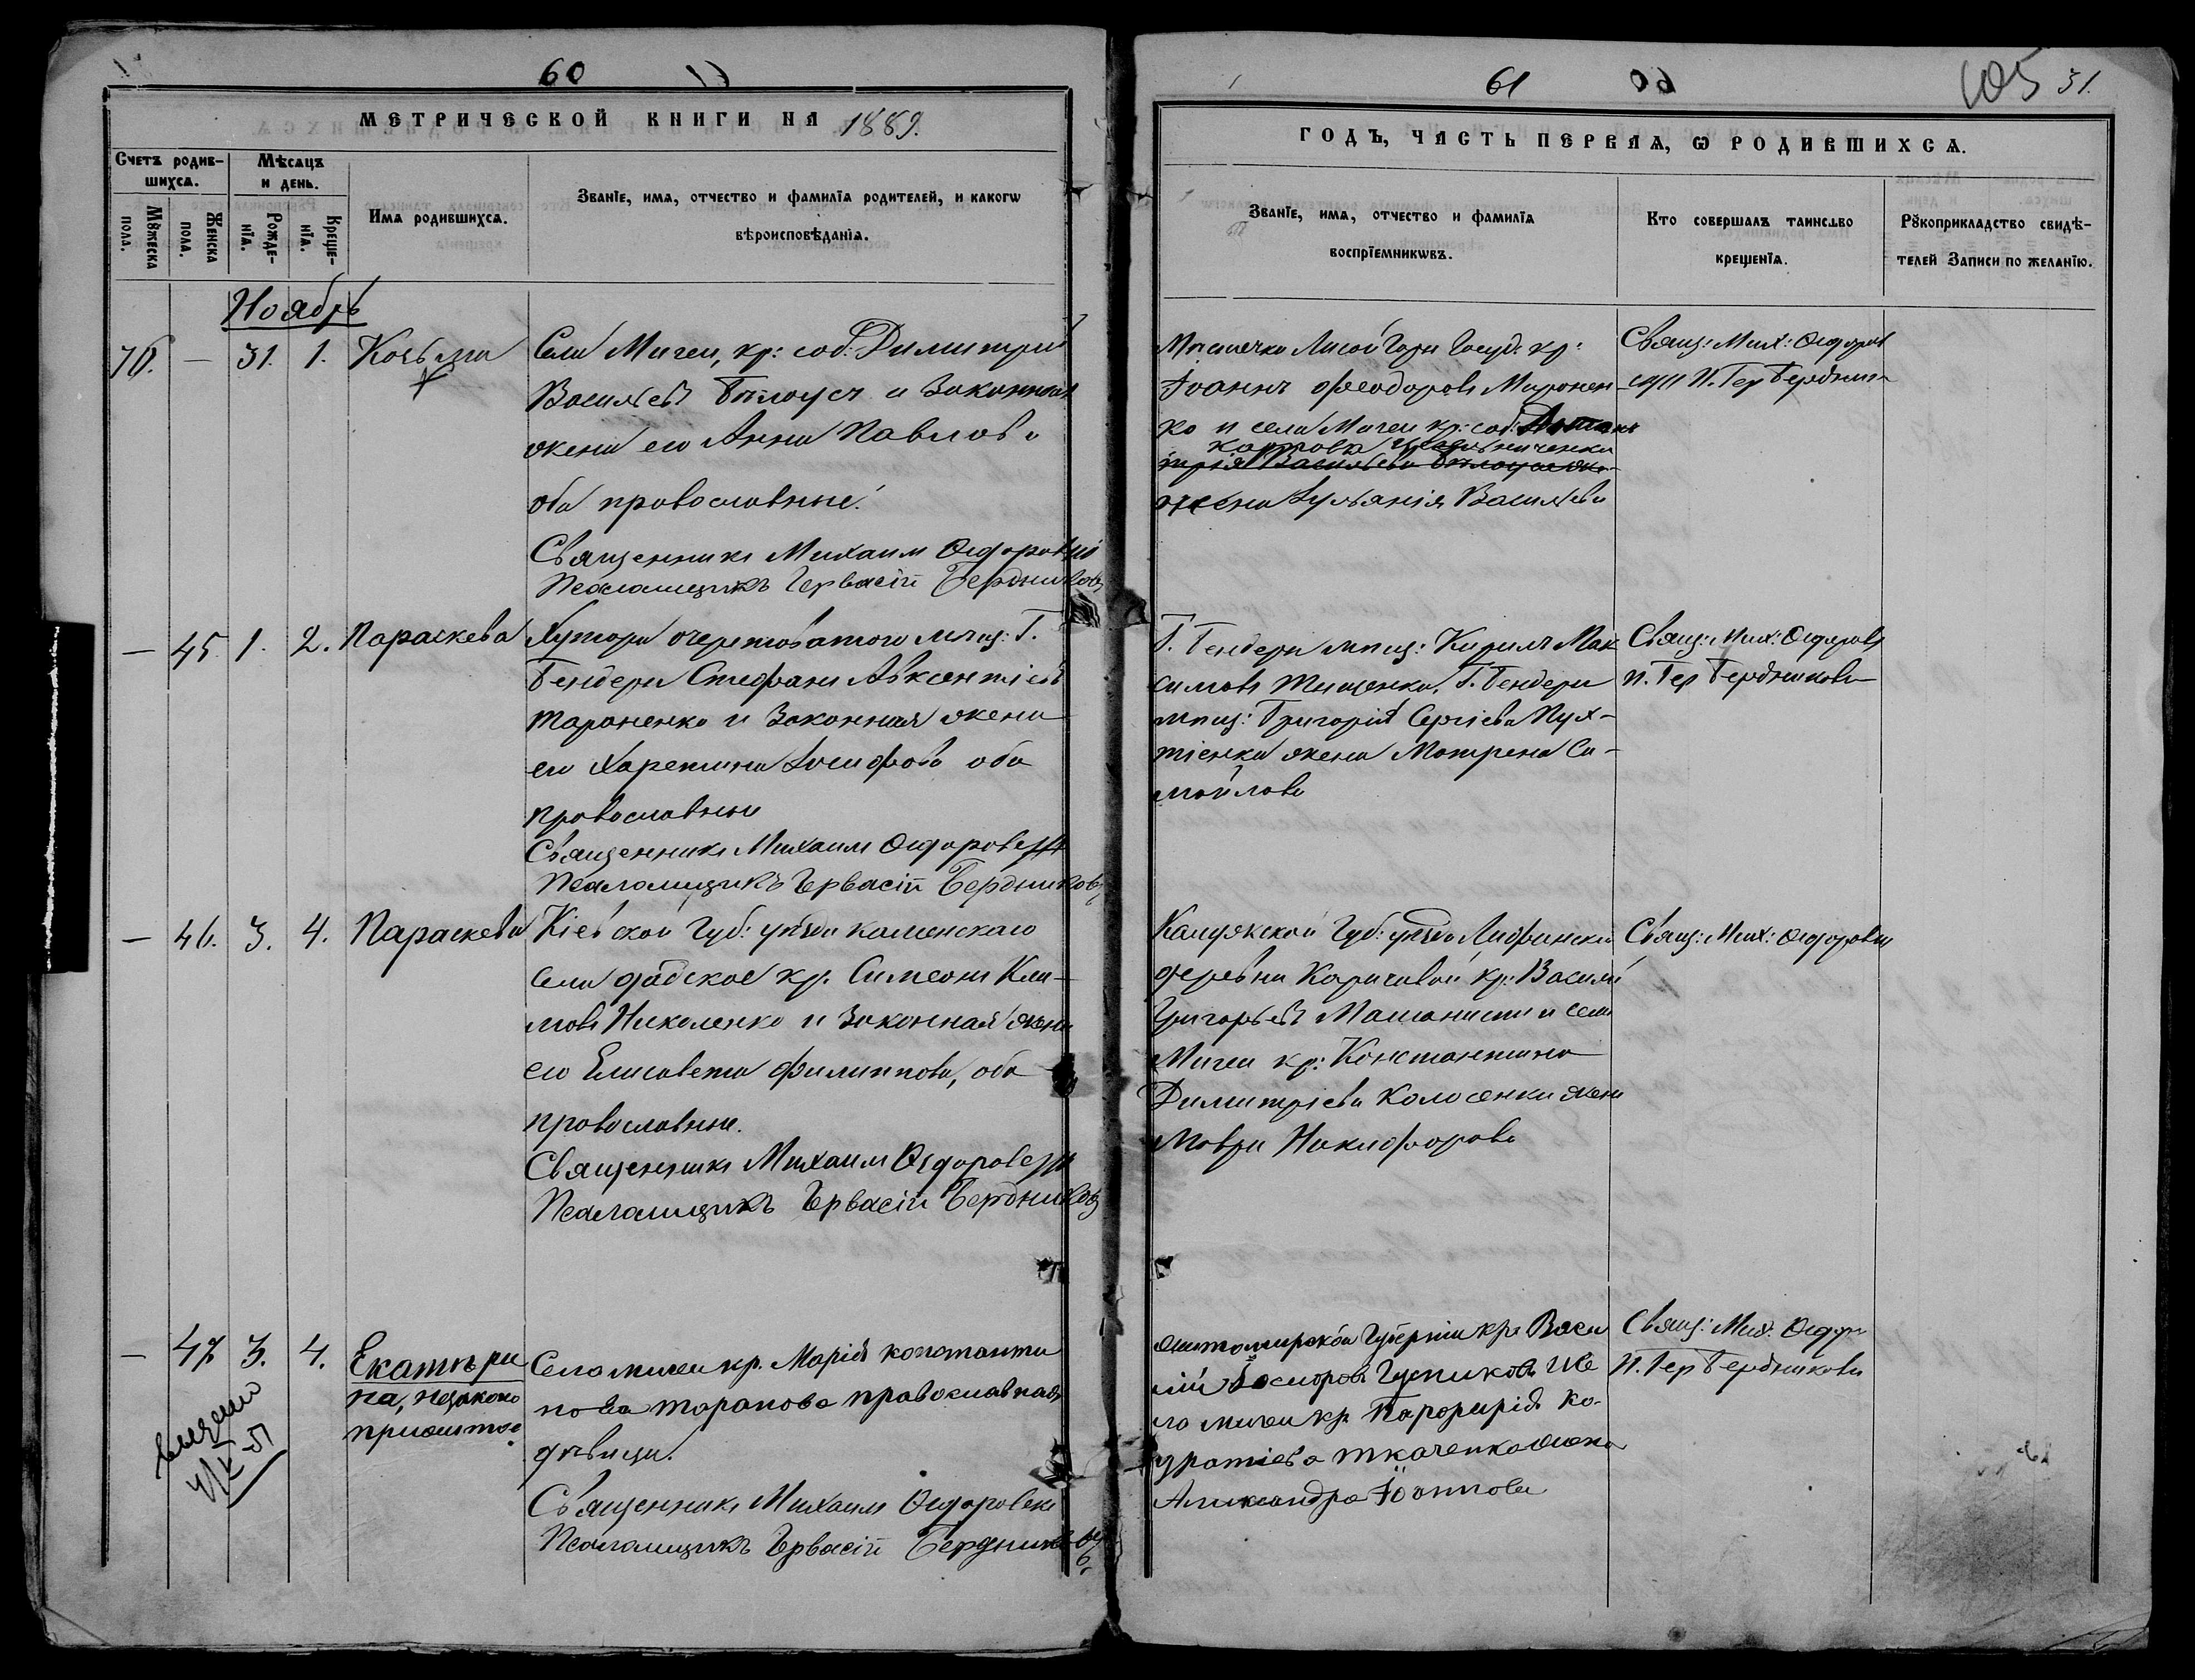 60
МЕТРИЧЕСКОЙ КНИГИ НА 1889.
Счетъ родив-
шихся.
Мѣсяцъ
и день.
Мꙋжеска
пола.
Женска
пола.
Рожде-
нїа.
Креще-
нїа.
Имя родившихся.
Званїе, имя, отчество и фамилїа родителей, и какогѡ
вѣроисповѣданїа.
Ноябрь
— 31. 1. Козьма
Села Мигеи, кр: соб: Димитрій
Васильевъ Бѣлоусъ и законная
жена его Анна Павлова
оба православные.
Священникъ Михаилъ Ѳедоровскій
Псаломщикъ Гервасій Бердниковъ
— 45. 1. 2. Параскева
Хутора Очеретоватого мѣщ: Г.
Бендеры Стефанъ Авксентіевъ
Тараненко и законная жена
его Харетина Іосифова оба
православные
Священникъ Михаилъ Ѳедоровскій
Псаломщикъ Гервасій Бердниковъ
— 46. 3. 4. Параскева
Кіевской Губ: уѣзда Каменскаго
села кр. Симеонъ Кли-
мовъ Николенко и законная жена
его Елисавета Филиппова, оба
православные.
Священникъ Михаилъ Ѳедоровскій
Псаломщикъ Гервасій Бердниковъ
— 47 3. 4. Екатери
на, незаконо
прижитое
Село мигеи кр. Марія константи
нова таранова православная
дѣвица.
Священникъ Михаилъ Ѳедоровскій
Псаломщикъ Гервасій Бердниковъ
61
105 31.
ГОДЪ, ЧАСТЬ ПЕРВАЯ, Ѡ РОДИВШИХСЯ.
Званїе, имя, отчество и фамилїа
воспрїемникѡвъ.
Кто совершалъ таинство
крещенїа.
Рꙋкоприкладство свидѣ-
телей Записи по желанїю.
Мѣстечка Лисой Горы Госуд: кр:
Іоаннъ Феодоровъ Миронен-
ко и села Мигеи кр: соб:
Карпова
жена Іуліанія Васильева
Свящ: Мих: Ѳедоров
скій П. Гер Бердник
Г. Бендеры мѣщ: Кирилъ Мак
симовъ Тищенко, Г. Бендеры
мѣщ: Григорія Сергіева Пух-
тіенка жена Матрена Са-
мойлова
Свящ: Мих: Ѳедоровъ
П. Гер Бердниковъ
Калужской Губ: уѣзда
деревни кр: Василій
Григорьевъ и села
Мигеи кр: Константина
Димитріева Колосенки жена
Мавра Никифорова
Свящ: Мих: Ѳедоровскій
житомирской Губерніи кр. Васи
лій Гусниковъ и Се
ло мигеи кр. Парфирія Ко-
дратіева ткаченка жена
Александра Іоаннова
Свящ: Мих. Ѳедор
П. Гер Бердниковъ